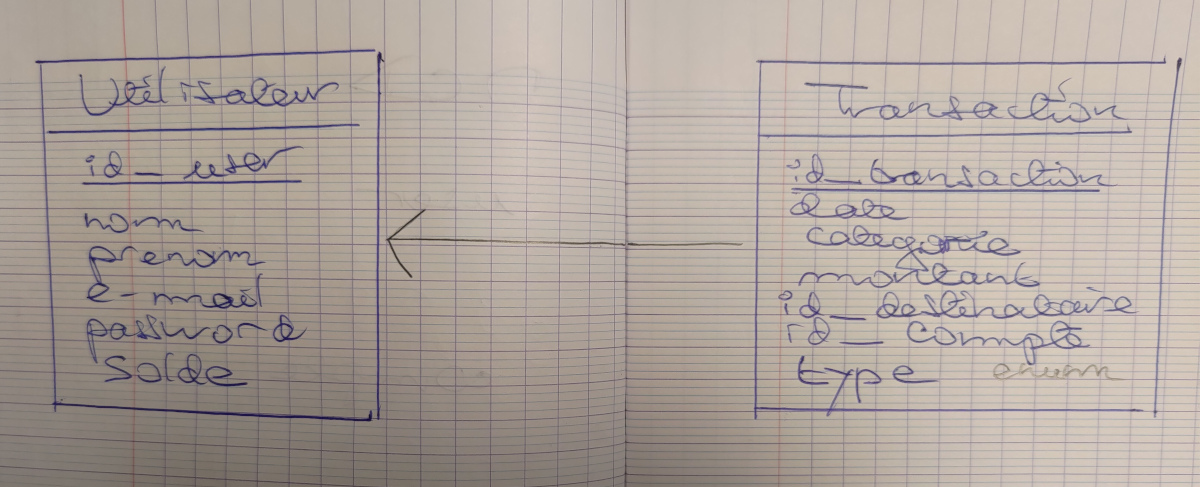 Utilisateur
id_user
nom
prenom
e-mail
password
solde
Transaction
id_transaction
date
categorie
montant
id_destinataire
id_compte
type enum